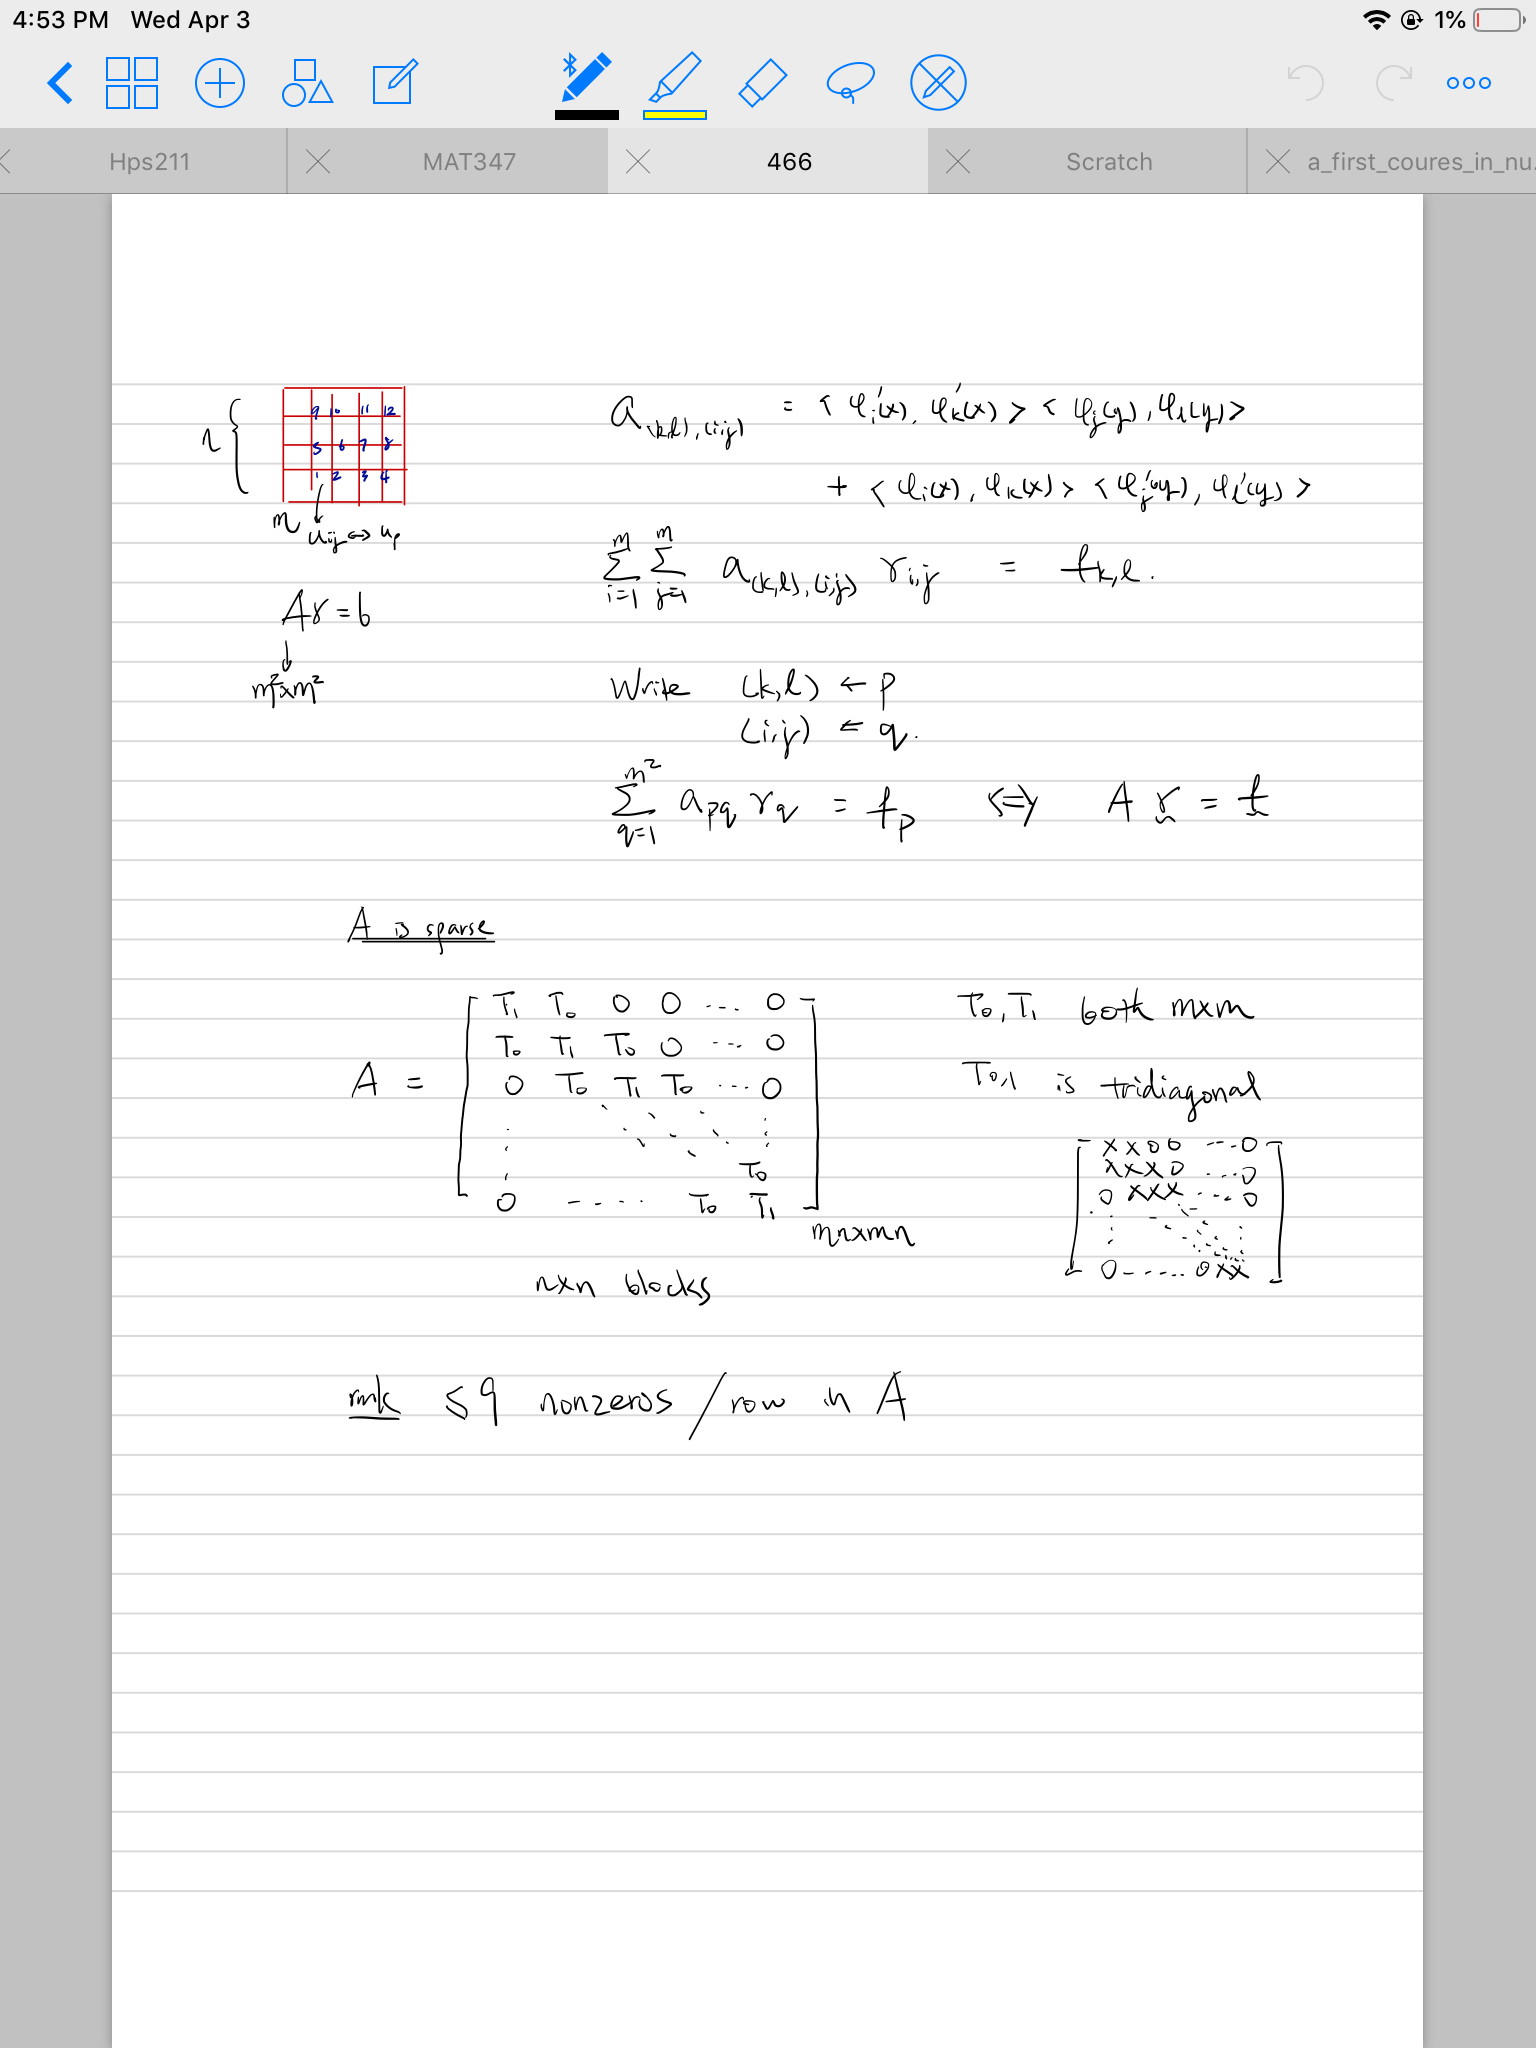 4:53 PM Wed Apr 3
1%
Hps211
MAT347
466
Scratch
a_first_coures_in_nu.
9 10 11 12
5 6 7 8
1 2 3 4
n {
m
u_ij ⇔ u_p
a_(k,l),(i,j) = < φ_i'(x), φ_k'(x) > < φ_j(y), φ_l(y) >
+ < φ_i(x), φ_k(x) > < φ_j'(y), φ_l'(y) >
∑_{i=1}^{m} ∑_{j=1}^{m} a_(k,l),(i,j) r_i,j = f_k,l.
Ar = b
↓
m²×m²
Write (k,l) ← p
(i,j) ← q.
∑_{q=1}^{m²} a_pq r_q = f_p ⇔ A r = f
A is sparse
T₁ T₀ 0 0 ... 0
T₀ T₁ T₀ 0 ... 0
A = 0 T₀ T₁ T₀ ... 0
T₀
0 .... T₀ T₁
mn×mn
n×n blocks
T₀, T₁ both m×m
T₀,₁ is tridiagonal
x x 0 0 ... 0
x x x 0 ... 0
0 x x x ... 0
0 ..... 0 x x
rmk ≤ 9 nonzeros / row in A